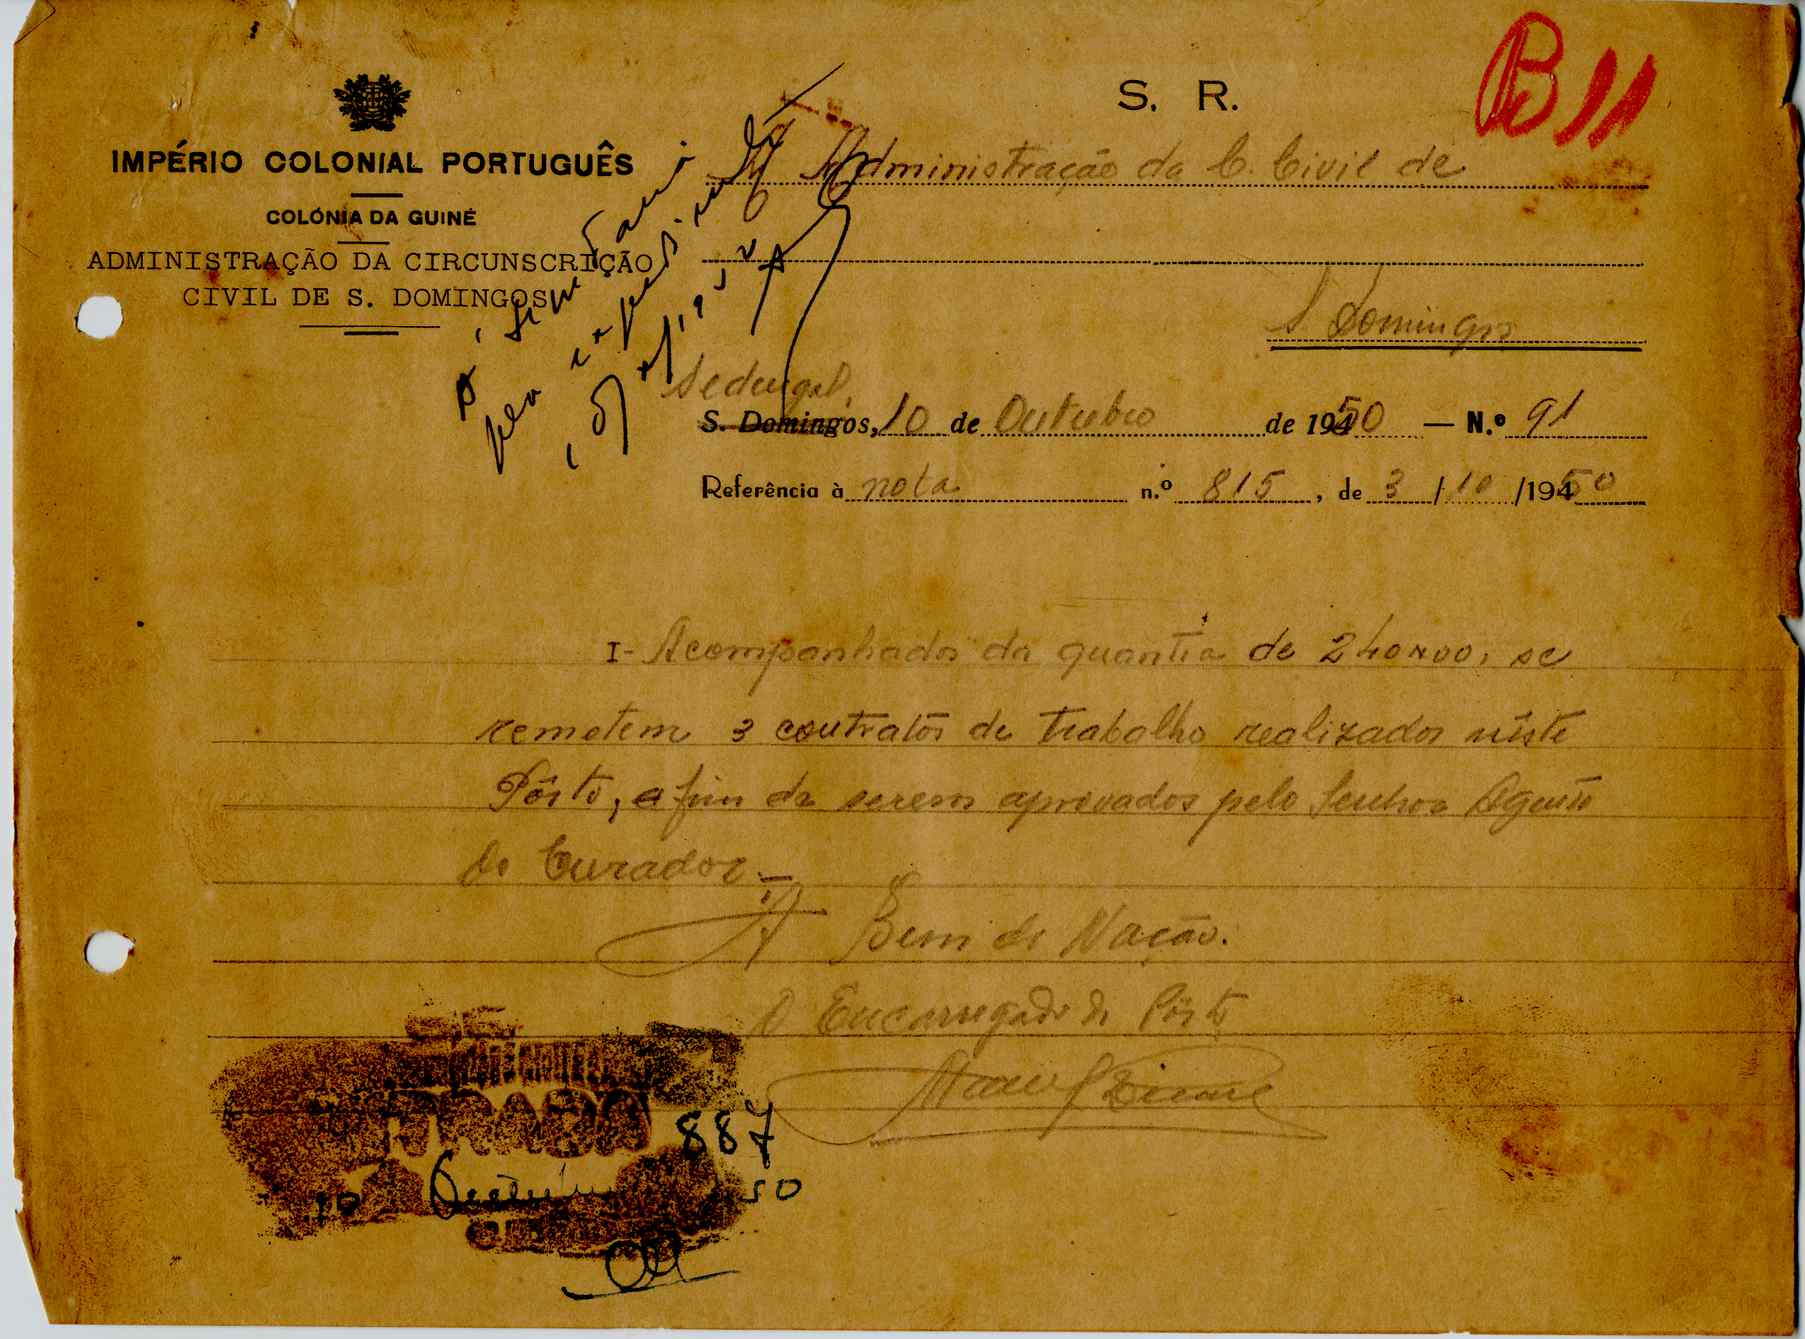 B 11
S. R.
IMPÉRIO COLONIAL PORTUGUÊS
COLÓNIA DA GUINÉ
ADMINISTRAÇÃO DA CIRCUNSCRIÇÃO
CIVIL DE S. DOMINGOS
Á Administração da C. Civil de
S. Domingos
Sedengal,
S. Domingos, 10 de Outubro de 19450 — N.º 91
Referência à nota n.º 815, de 3/10/19450
I- Acompanhados da quantia de 240$00, se
remetem 3 contratos de trabalho realizados nêste
Pôsto, a fim de serem aprovados pelo Senhor Agente
do Curador.—
A Bem da Nação.
O Encarregado do Pôsto
ENTRADA 887
10 Outubro 50